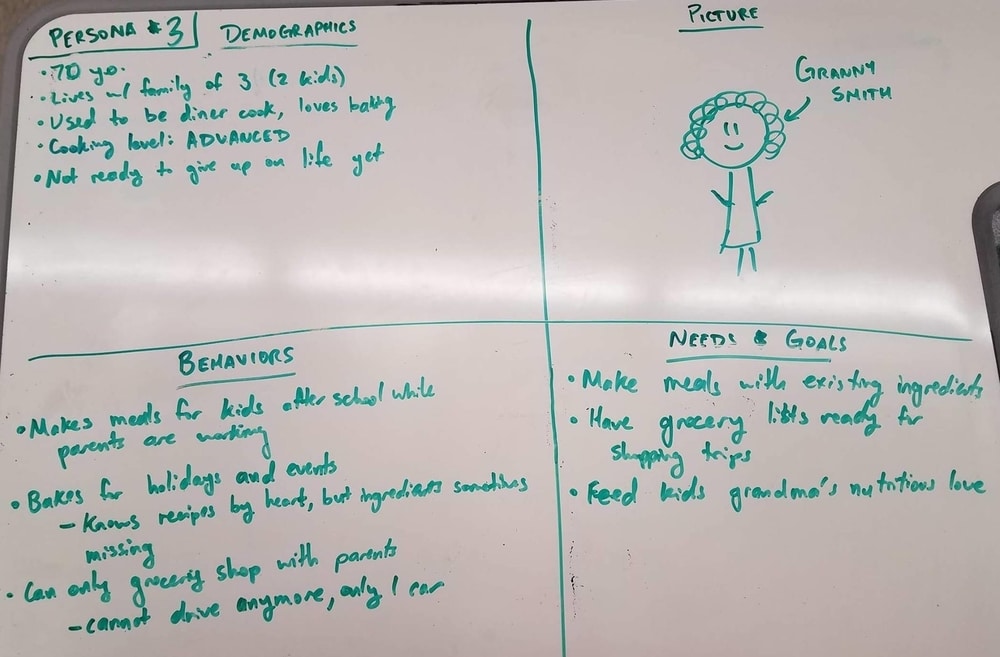 PERSONA #3
DEMOGRAPHICS
• 70 yo.
• Lives w/ family of 3 (2 kids)
• Used to be diner cook, loves baking
• Cooking level: ADVANCED
• Not ready to give up on life yet
PICTURE
GRANNY
SMITH
BEHAVIORS
• Makes meals for kids after school while
parents are working
• Bakes for holidays and events
– Knows recipes by heart, but ingredients sometimes
missing
• Can only grocery shop with parents
– cannot drive anymore, only 1 car
NEEDS & GOALS
• Make meals with existing ingredients
• Have grocery lists ready for
shopping trips
• Feed kids grandma's nutritious love